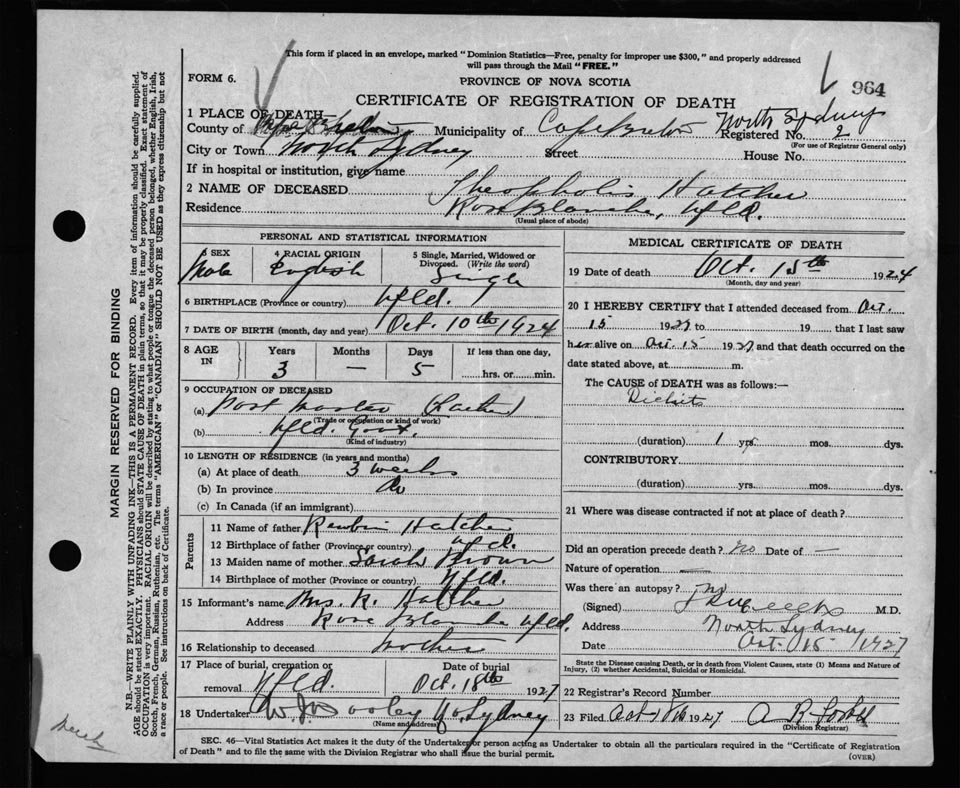 This form if placed in an envelope, marked "Dominion Statistics—Free, penalty for improper use $300," and properly addressed
will pass through the Mail "FREE."
FORM 6.
PROVINCE OF NOVA SCOTIA
964
CERTIFICATE OF REGISTRATION OF DEATH
1 PLACE OF DEATH
North Sydney
County of Municipality of Cape Breton Registered No. 2
(For use of Registrar General only)
City or Town North Sydney Street House No.
If in hospital or institution, give name
2 NAME OF DECEASED Theopholis Hatcher
Residence Rose Blanche, Nfld.
(Usual place of abode)
PERSONAL AND STATISTICAL INFORMATION
3 SEX 4 RACIAL ORIGIN 5 Single, Married, Widowed or
Divorced. (Write the word)
Male English Single
6 BIRTHPLACE (Province or country) Nfld.
7 DATE OF BIRTH (month, day and year) Oct. 10th 1924
8 AGE IN Years Months Days If less than one day,
3 — 5 hrs. or min.
9 OCCUPATION OF DECEASED
(a) Post Master (Father)
(Trade or occupation or kind of work)
(b) Nfld. Govt.
(Kind of industry)
10 LENGTH OF RESIDENCE (in years and months)
(a) At place of death 3 weeks
(b) In province do
(c) In Canada (if an immigrant)
Parents
11 Name of father Reubin Hatcher
12 Birthplace of father (Province or country) Nfld.
13 Maiden name of mother Sarah Brown
14 Birthplace of mother (Province or country) Nfld.
15 Informant's name Mrs. R. Hatcher
Address Rose Blanche Nfld.
16 Relationship to deceased Mother
17 Place of burial, cremation or Date of burial
removal Nfld. Oct. 18th 1927
18 Undertaker W. J. Dooley No Sydney
(Name and address)
MEDICAL CERTIFICATE OF DEATH
19 Date of death Oct. 15th 1924
(Month, day and year)
20 I HEREBY CERTIFY that I attended deceased from Oct.
15 1927 to 19 that I last saw
h alive on Oct. 15 1927 and that death occurred on the
date stated above, at m.
The CAUSE of DEATH was as follows:—
(duration) 1 yrs. mos. dys.
CONTRIBUTORY
(duration) yrs. mos. dys.
21 Where was disease contracted if not at place of death?
Did an operation precede death? no Date of —
Nature of operation —
Was there an autopsy? no
(Signed) M.D.
Address North Sydney
Date Oct. 15 1927
State the Disease causing Death, or in death from Violent Causes, state (1) Means and Nature of
Injury, (2) whether Accidental, Suicidal or Homicidal.
22 Registrar's Record Number
23 Filed Oct 1927 A R
(Division Registrar)
SEC. 46—Vital Statistics Act makes it the duty of the Undertaker or person acting as Undertaker to obtain all the particulars required in the "Certificate of Registration
of Death" and to file the same with the Division Registrar who shall issue the burial permit.
(OVER)
MARGIN RESERVED FOR BINDING
N.B.—WRITE PLAINLY WITH UNFADING INK—THIS IS A PERMANENT RECORD. Every item of information should be carefully supplied.
AGE should be stated EXACTLY. PHYSICIANS should STATE CAUSE OF DEATH in plain terms, so that it may be properly classified. Exact statement of
OCCUPATION is very important. RACIAL ORIGIN will be described by stating to what people or tongue the deceased person belonged, whether English, Irish,
Scotch, French, German, Russian, Ruthenian, etc. The terms "AMERICAN" or "CANADIAN" SHOULD NOT BE USED as they express citizenship but not
a race or people. See instructions on back of Certificate.